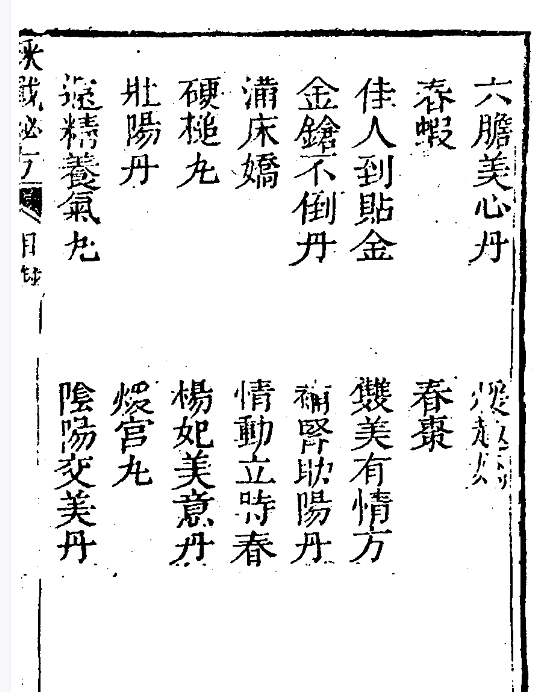 六膽美心丹
春蝦　春棗
佳人到貼金　雙美有情方
金鎗不倒丹　補腎助陽丹
滿床嬌　情動立時春
硬槌丸　楊妃美意丹
壯陽丹　煖宮丸
精養氣丸　陰陽交美丹
戰秘方　目錄